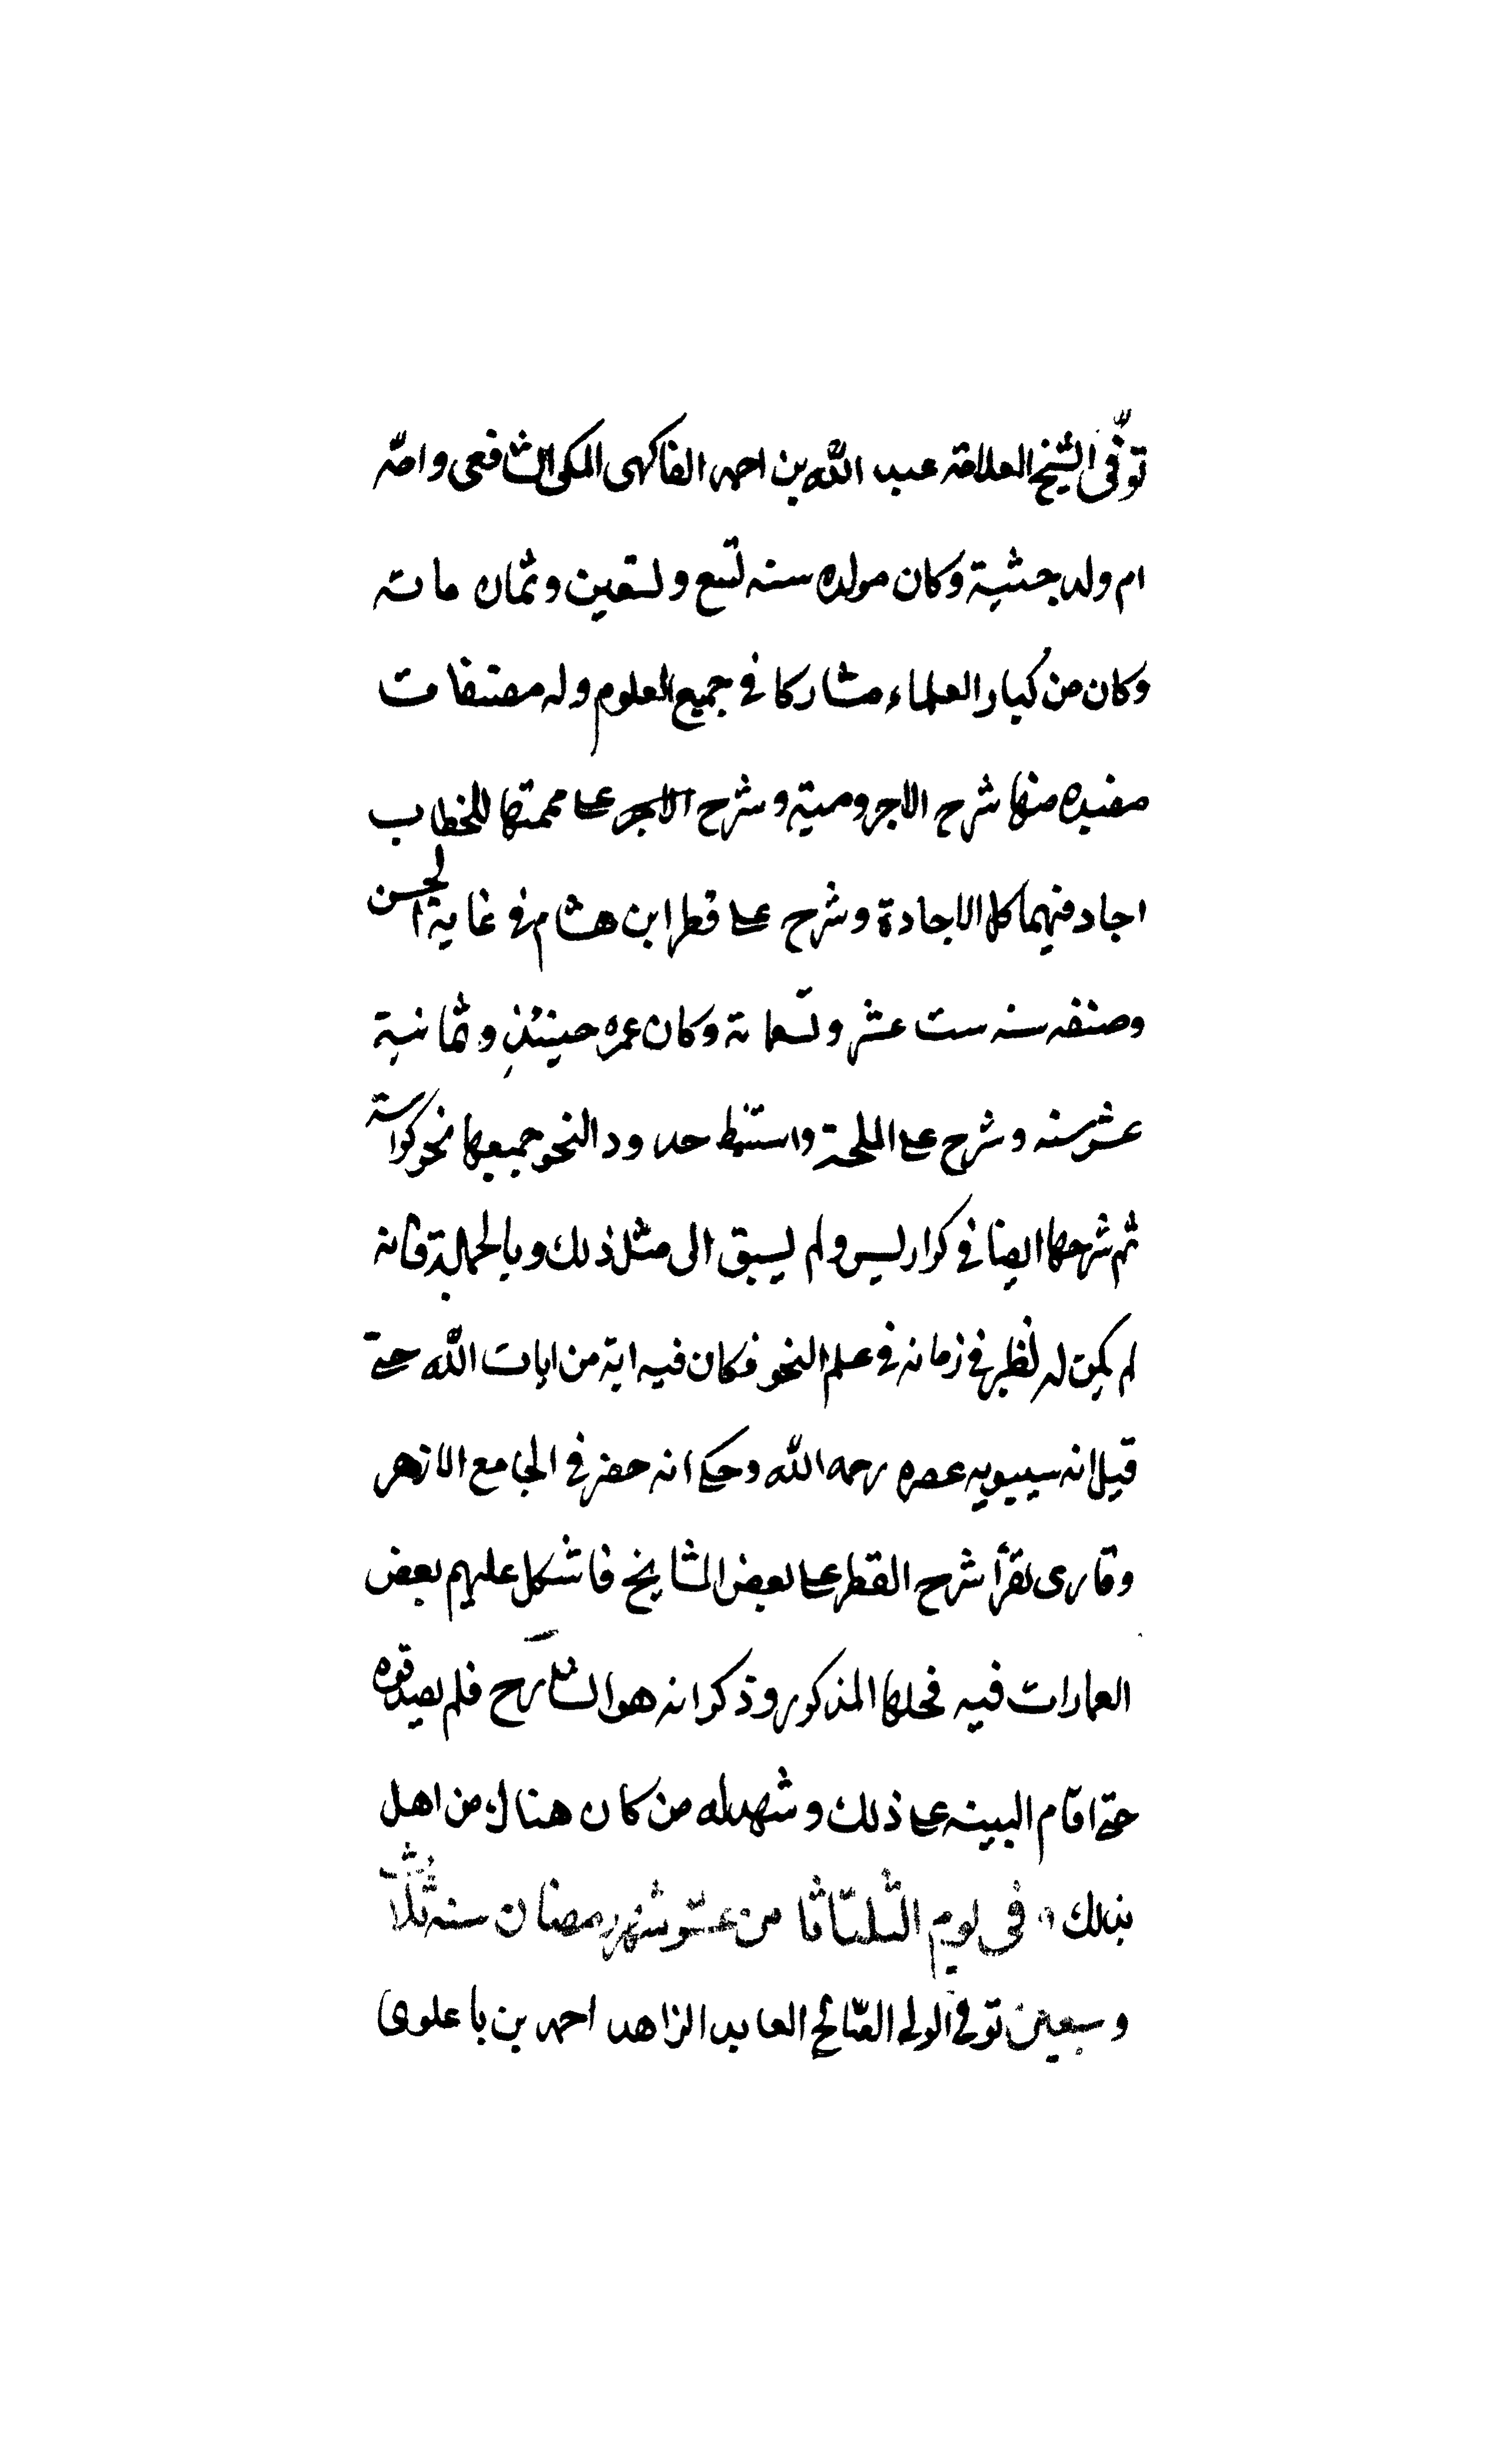 توفّى الشيخ العلامة عبد الله بن احمد الفاكهى المكى الشافعى وامّه
ام ولد حبشية وكان مولده سنه تسع وتسعين وثمان مائة
وكان من كبار العلماء مشاركا في جميع العلوم وله مصنفات
مفيده منها شرح الاجرومية وشرح على متممتها للخطاب
اجاد فيهما كل الاجادة وشرح على قطر ابن هشام في غاية الحسن
وصنفه سنه ست عشر وتسعمائة وكان عمره حينئذٍ وثمانية
عشر سنه وشرح على الملحة واستنبط حدود النحو جميعها نحو كراسة
ثم شرحها ايضا في كراريس ولم يسبق الى مثل ذلك وبالجملة فانه
لم يكن له نظير في زمانه في علم النحو فكان فيه اية من ايات الله حتى
قيل انه سيبويه عصره رحمه الله وحكى انه حضر في الجامع الازهر
وقارى يقرأ شرح القطر على بعض المشايخ فاشكل عليهم بعض
العبارات فيه فحلها المذكور وذكر انه هو الشارح فلم يصدقوه
حتى اقام البينه على ذلك وشهد له من كان هناك من اهل
بذلك في يوم الثلثاثا من عشر شهر رمضان سنه ثلاث
وسبعين توفي الولي الصّالح العابد الزاهد احمد بن باعلوى